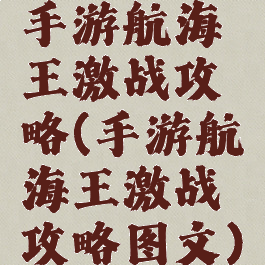 手游航海
王激战攻
略(手游航
海王激战
攻略图文)